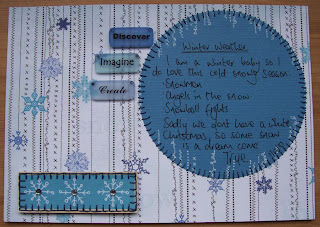 Discover
Imagine
Create
Winter Weather
I am a winter baby so I
do love this cold snowy season.
Snowmen
Angels in the snow
Snowball fights
Sadly we dont have a white
Christmas, so some snow
is a dream come
True